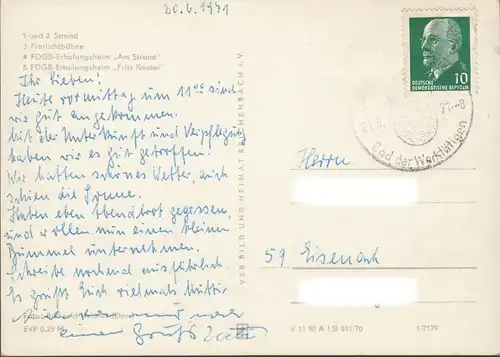 20.6.1971
1 und 2 Strand
3 Freilichtbühne
4 FDGB-Erholungsheim „Am Strand“
5 FDGB-Erholungsheim „Fritz Reuter“
Ihr Lieben!
Heute vormittag um 11⁰⁰ sind
wir gut angekommen.
Mit der Unterkunft und Verpflegung
haben wir es gut getroffen.
Wir hatten schönes Wetter, auch
schien die Sonne.
Haben eben Abendbrot gegessen,
und wollen nun einen kleinen
Bummel unternehmen.
Schreibe nochmal ausführlich.
Es grüßt Euch vielmals Mutti
einen Gruß
EVP 0,25 M
VEB BILD UND HEIMAT REICHENBACH I. V.
V 11 50 A 1/B 911/70
1/7179
DEUTSCHE
DEMOKRATISCHE REPUBLIK
10
71-8
Bad der Werktätigen
Herrn
59 Eisenach